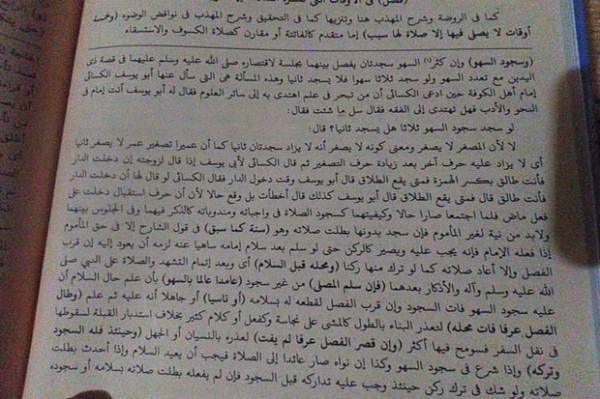 كما فى الروضة وشرح المهذب هنا وتنزيها كما فى التحقيق وشرح المهذب فى نواقض الوضوء (وخمسة
أوقات لا يصلى فيها إلا صلاة لها سبب) إما متقدم كالفائتة أو مقارن كصلاة الكسوف والاستسقاء
(وسجود السهو) وإن كثر السهو سجدتان يفصل بينهما بجلسة لاقتصاره صلى الله عليه وسلم عليهما فى قصة ذى
اليدين مع تعدد السهو ولو سجد ثلاثا سهوا فلا يسجد ثانيا وهذه المسألة هى التى سأل عنها أبو يوسف الكسائى
إمام أهل الكوفة حين ادعى الكسائى أن من تبحر فى علم اهتدى به إلى سائر العلوم فقال له أبو يوسف أنت إمام فى
النحو والأدب فهل تهتدى إلى الفقه فقال سل ما شئت فقال:
لو سجد سجود السهو ثلاثا هل يسجد ثانيا؟ قال:
لا لأن المصغر لا يصغر ومعنى كونه لا يصغر أنه لا يزاد سجدتان ثانيا كما أن عميرا تصغير عمر لا يصغر ثانيا
أى لا يزاد عليه حرف آخر بعد زيادة حرف التصغير ثم قال الكسائى لأبى يوسف إذا قال لزوجته إن دخلت الدار
فأنت طالق بكسر الهمزة فمتى يقع الطلاق قال أبو يوسف وقت دخول الدار فقال الكسائى لو قال لها أن دخلت الدار
فأنت طالق قال فمتى يقع الطلاق قال أبو يوسف كذلك قال أخطأت بل وقع حالا لأن أن حرف استقبال دخلت على
فعل ماض فلما اجتمعا صارا حالا وكيفيتهما كسجود الصلاة فى واجباته ومندوباته كالذكر فيهما وفى الجلوس بينهما
ولابد من نية لغير المأموم فإن سجد بدونها بطلت صلاته وهو (سنة كما سبق) فى قول الشارح إلا فى حق المأموم
إذا فعله الإمام فإنه يجب عليه ويصير كالركن حتى لو سلم بعد سلام إمامه ساهيا عنه لزمه أن يعود إليه إن قرب
الفصل وإلا أعاد صلاته كما لو ترك منها ركنا (ومحله قبل السلام) أى وبعد إتمام التشهد والصلاة على النبى صلى
الله عليه وسلم وآله والأذكار بعدهما (فإن سلم المصلى) من غير سجود (عامدا عالما بالسهو) بأن علم حال السلام أن
عليه سجود سهو فات السجود وإن قرب الفصل لقطعه له بسلامه (أو ناسيا) أو جاهلا أنه عليه ثم علم (وطال
الفصل عرفا فات محله) لتعذر البناء بالطول كالمشى على نجاسة وكفعل أو كلام كثير بخلاف استدبار القبلة لسقوطها
فى نفل السفر فسومح فيها أكثر (وإن قصر الفصل عرفا لم يفت) لعذره بالنسيان أو الجهل (وحينئذ فله السجود
وتركه) وإذا شرع فى سجود السهو وكذا إن نواه صار عائدا إلى الصلاة فيجب أن يعيد السلام وإذا أحدث بطلت
صلاته ولو شك فى ترك ركن حينئذ وجب عليه تداركه قبل السجود فإن لم يفعله بطلت صلاته بسلامه أو سجوده